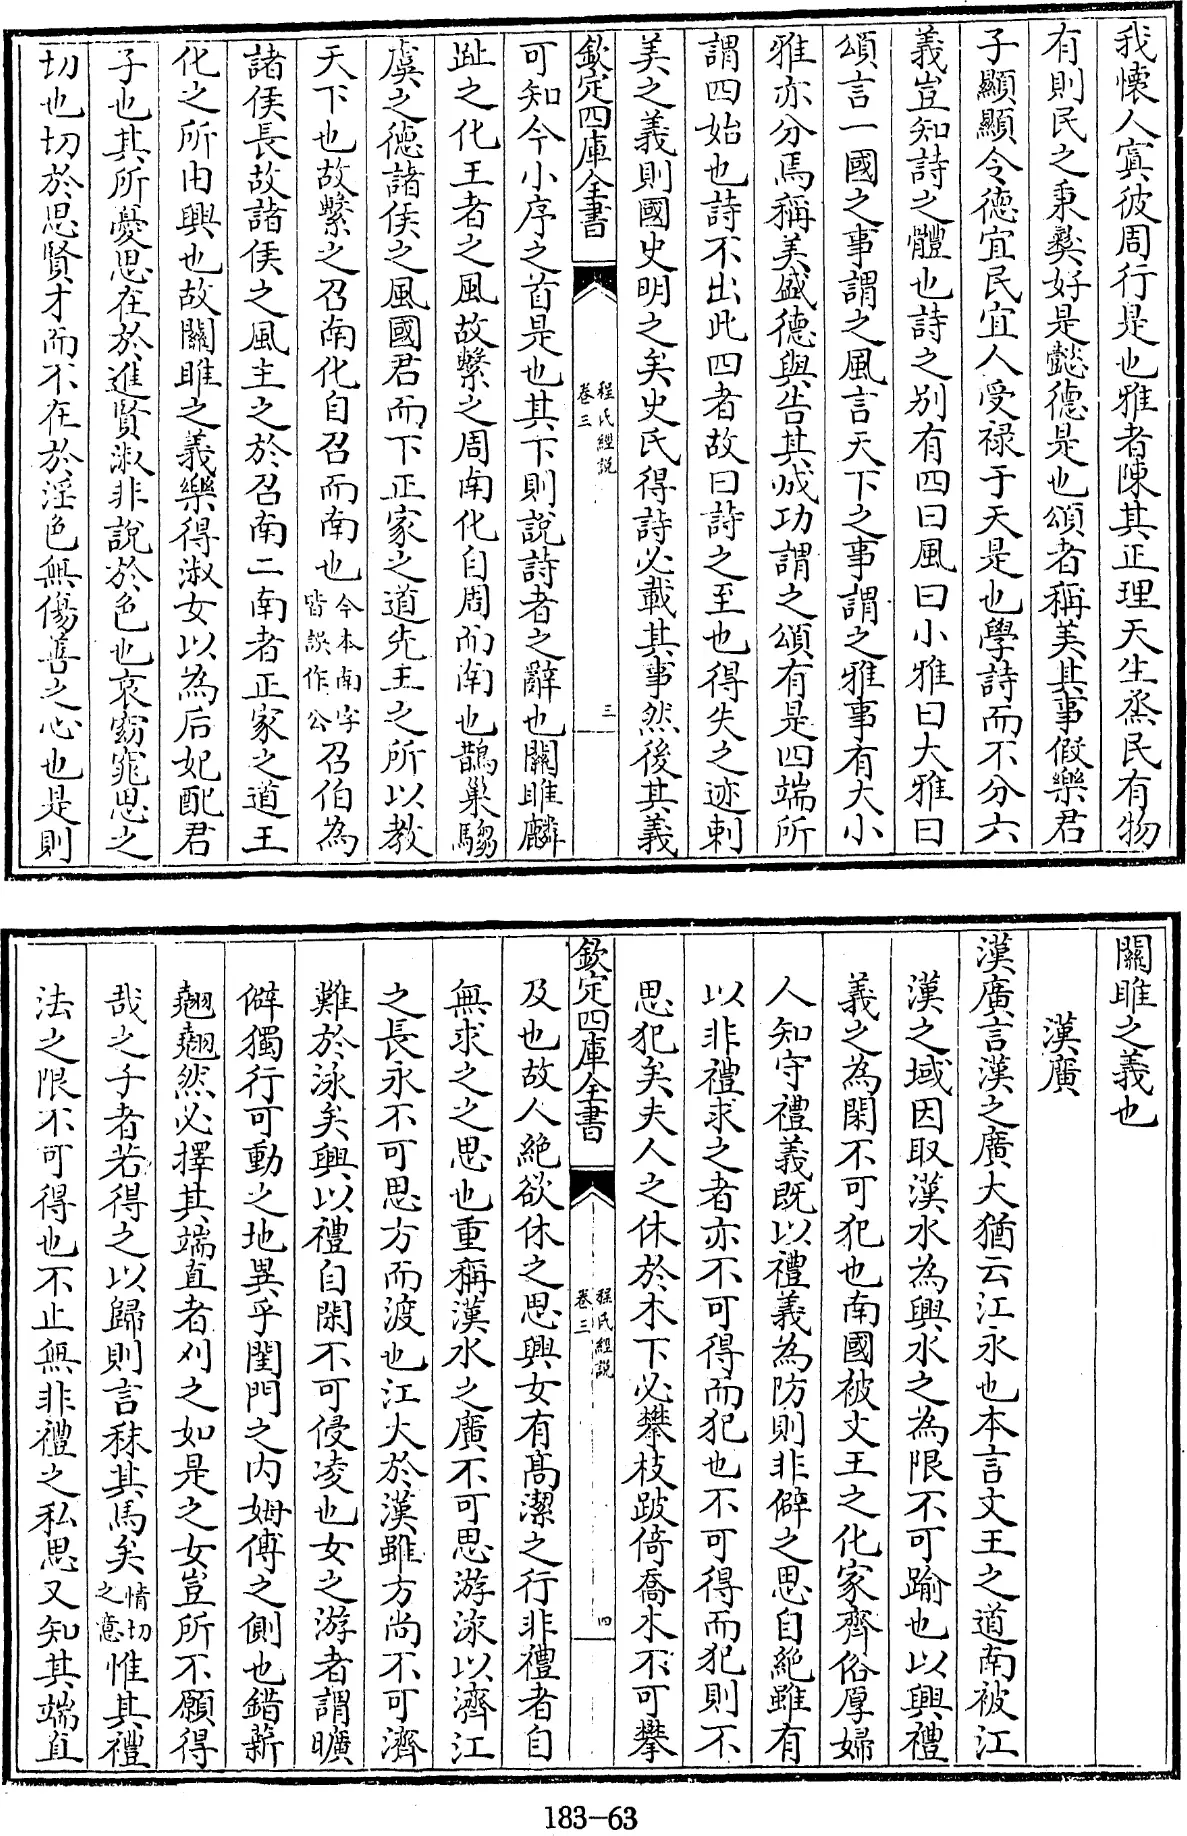 我懷人寘彼周行是也雅者陳其正理天生烝民有物
有則民之秉彝好是懿德是也頌者稱美其事假樂君
子顯顯令德宜民宜人受禄于天是也學詩而不分六
義豈知詩之體也詩之别有四曰風曰小雅曰大雅曰
頌言一國之事謂之風言天下之事謂之雅事有大小
雅亦分焉稱美盛德與告其成功謂之頌有是四端所
謂四始也詩不出此四者故曰詩之至也得失之迹刺
美之義則國史明之矣史氏得詩必載其事然後其義
欽定四庫全書
程氏經説
卷三
三
可知今小序之首是也其下則說詩者之辭也關雎麟
趾之化王者之風故繫之周南化自周而南也鵲巢騶
虞之德諸侯之風國君而下正家之道先王之所以教
天下也故繫之召南化自召而南也今本南字皆誤作公召伯為
諸侯長故諸侯之風主之於召南二南者正家之道王
化之所由興也故關雎之義樂得淑女以為后妃配君
子也其所憂思在於進賢淑非說於色也哀窈窕思之
切也切於思賢才而不在於淫色無傷善之心也是則
關雎之義也
漢廣
漢廣言漢之廣大猶云江永也本言文王之道南被江
漢之域因取漢水為興水之為限不可踰也以興禮
義之為閑不可犯也南國被文王之化家齊俗厚婦
人知守禮義既以禮義為防則非僻之思自絶雖有
以非禮求之者亦不可得而犯也不可得而犯則不
思犯矣夫人之休於木下必攀枝跛倚喬木不可攀
欽定四庫全書
程氏經説
卷三
四
及也故人絶欲休之思興女有高潔之行非禮者自
無求之之思也重稱漢水之廣不可思游泳以濟江
之長永不可思方而渡也江大於漢雖方尚不可濟
難於泳矣興以禮自閑不可侵凌也女之游者謂曠
僻獨行可動之地異乎閨門之内姆傅之側也錯薪
翹翹然必擇其端直者刈之如是之女豈所不願得
哉之子者若得之以歸則言秣其馬矣情切之意惟其禮
法之限不可得也不止無非禮之私思又知其端直
183-63